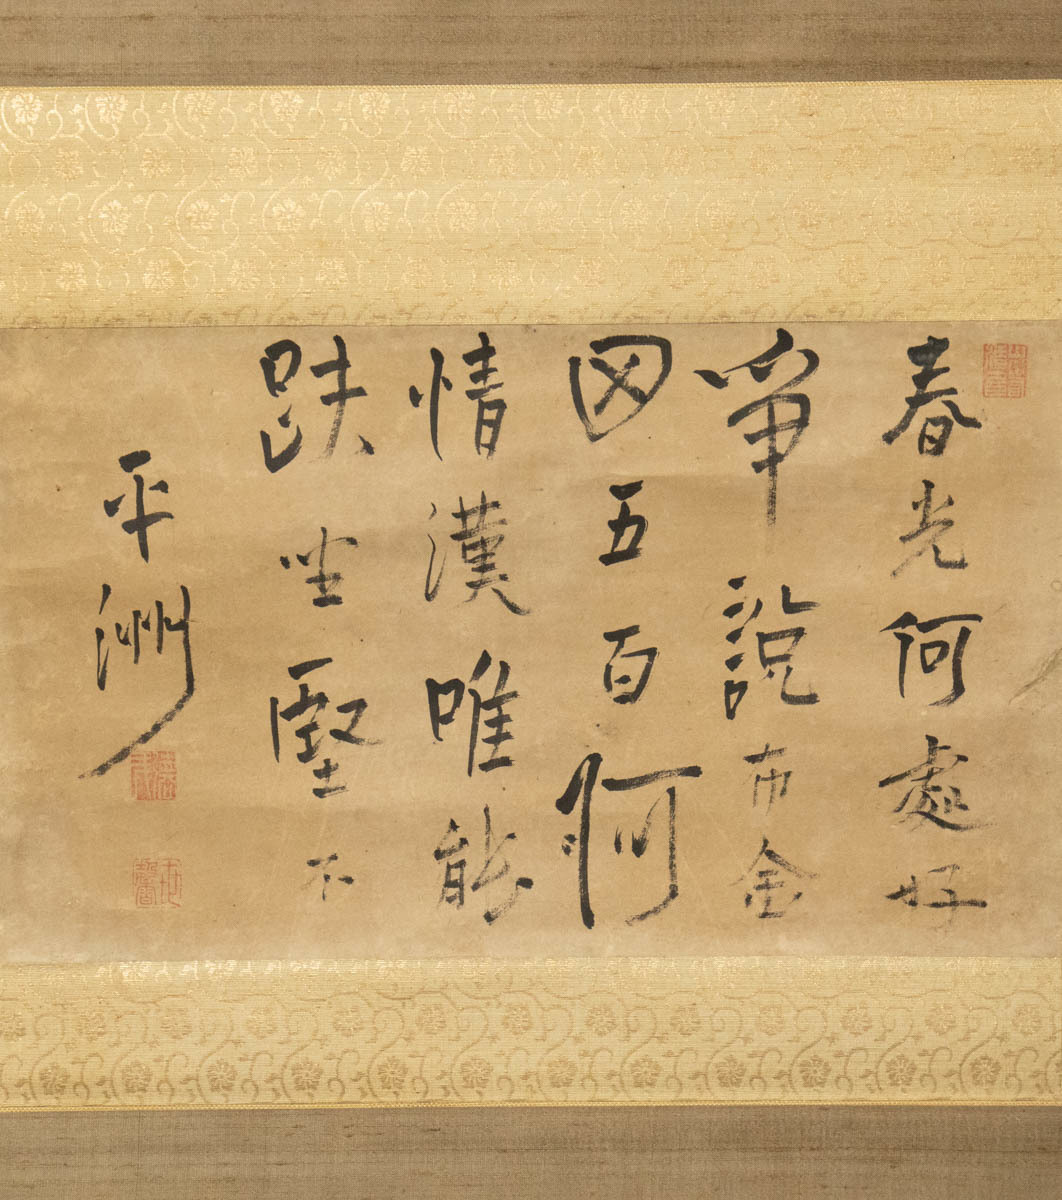 春光何處好
爭說布金
五百何
情漢唯能
趺坐堅不
平洲